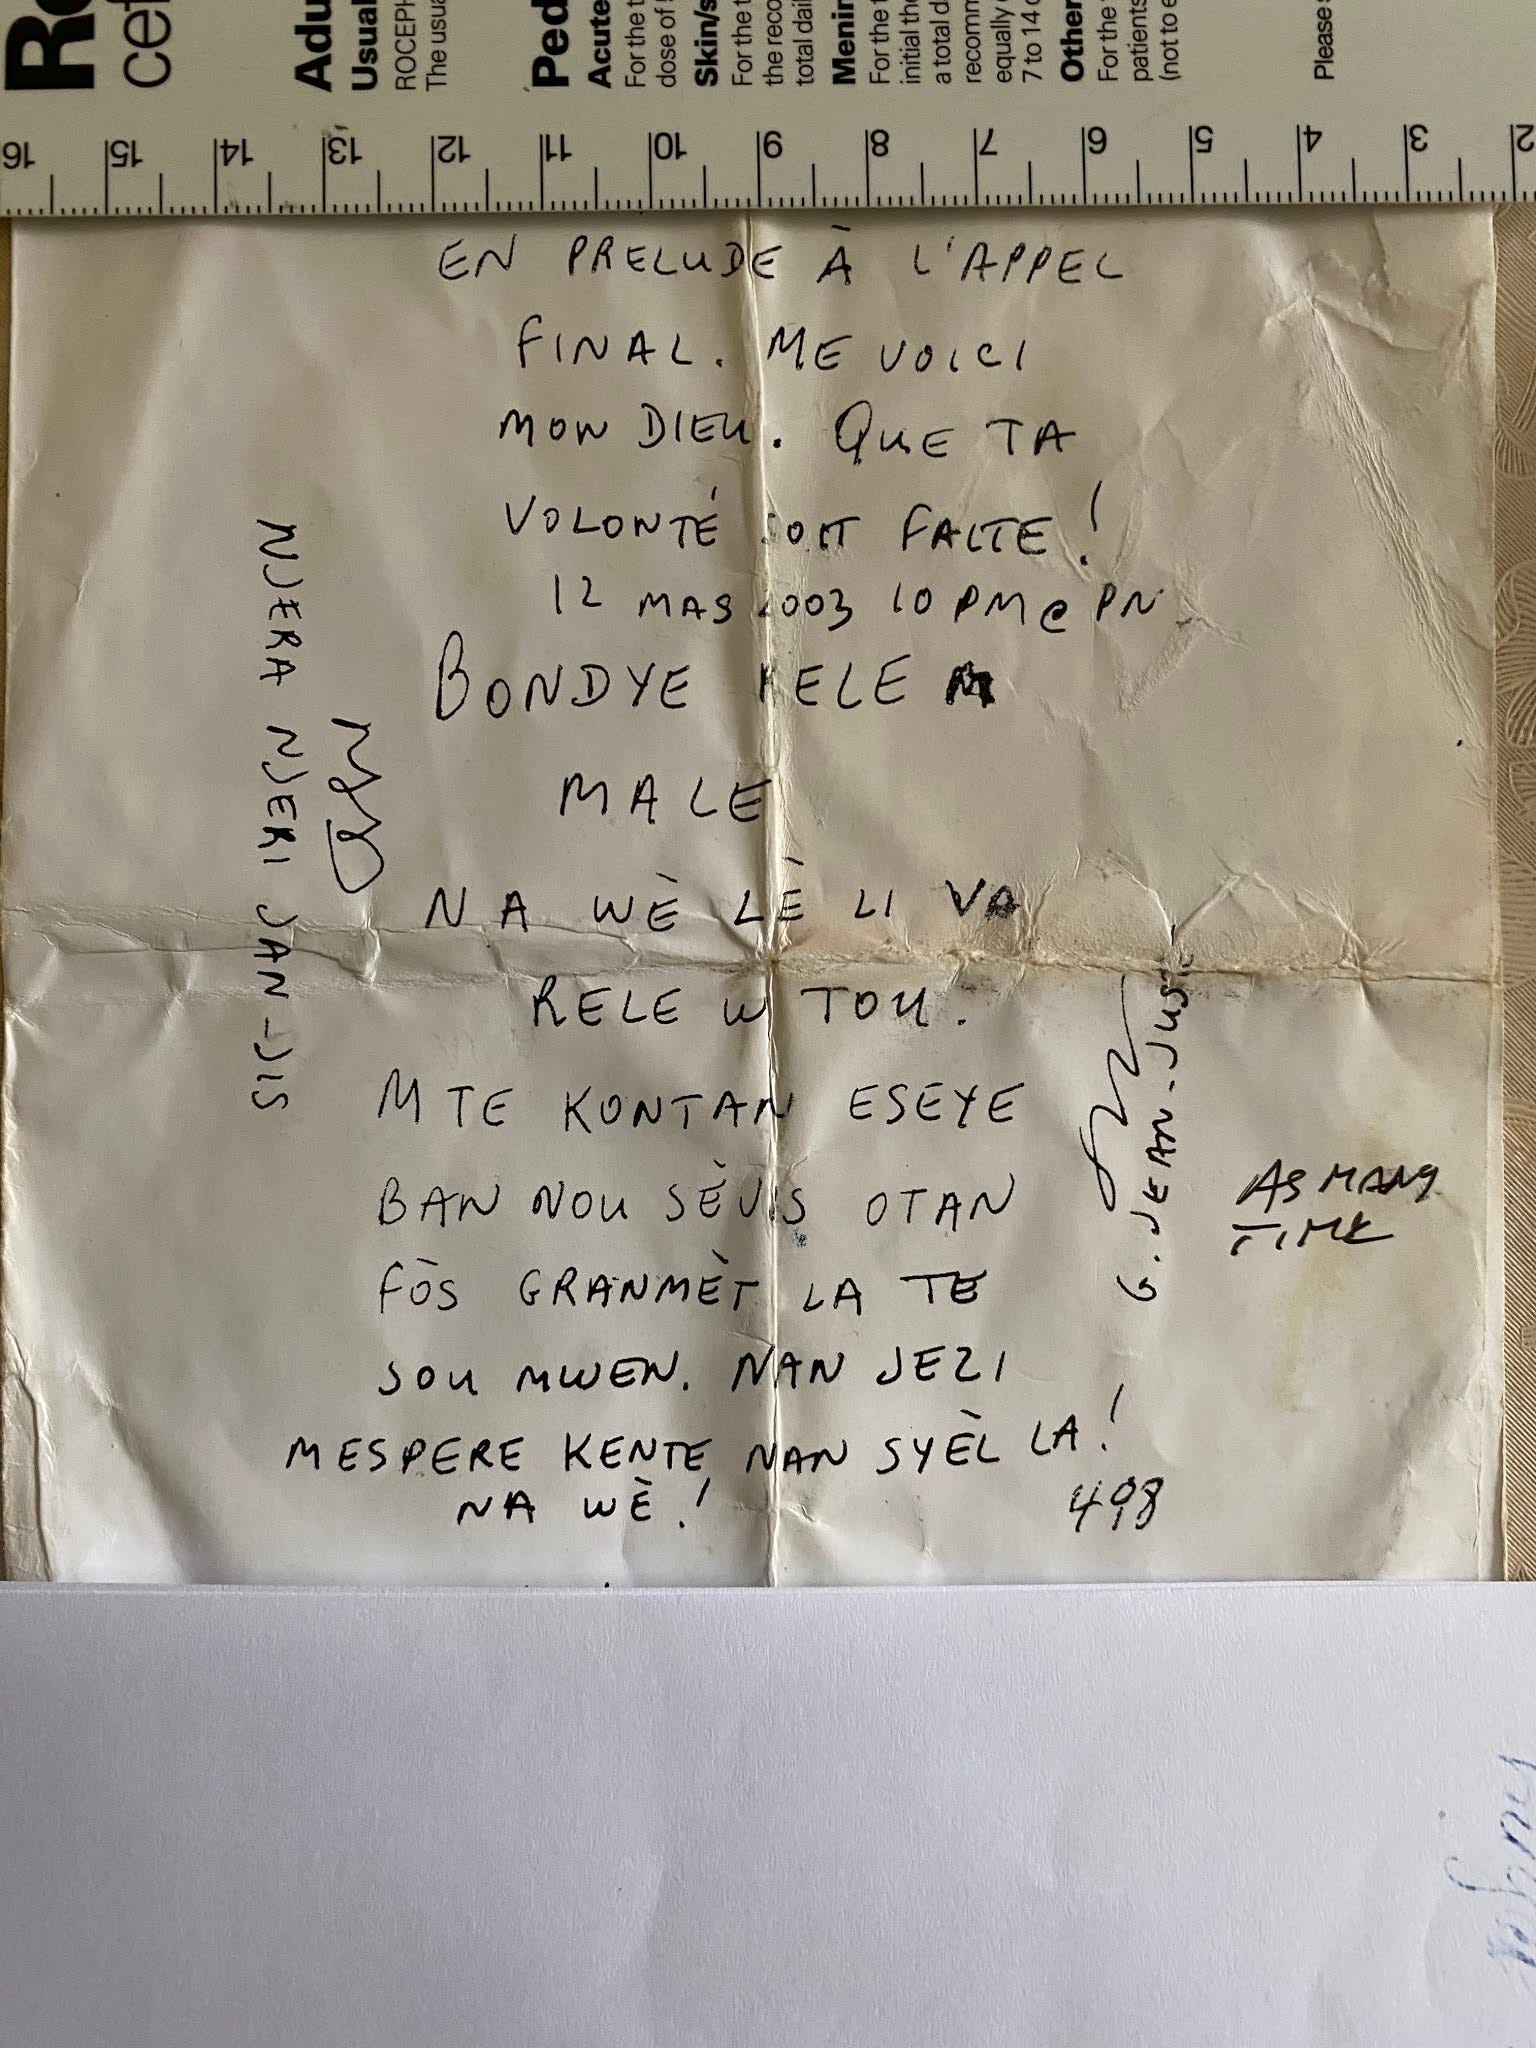 Adu
Usual
ROCEPH
The usua
Ped
Acute
For the t
dose of
Skin/s
For the t
the reco
total dail
Menin
For the t
initial the
a total d
recomm
equally
7 to 14 d
Other
For the
patients
(not to e
Please
16 15 14 13 12 11 10 9 8 7 6 5 4 3 2
EN PRELUDE À L'APPEL
FINAL. ME VOICI
MON DIEU. QUE TA
VOLONTÉ SOIT FAITE!
12 MAS 2003 10 PM @ PN
BONDYE RELE M
MALE
NA WÈ LÈ LI VA
RELE W TOU.
M TE KONTAN ESEYE
BAN NOU SÈVIS OTAN
FÒS GRANMÈT LA TE
SOU MWEN. NAN JEZI
MESPERE KENTE NAN SYÈL LA!
NA WÈ!
498
NJERA NJERI JAN-JIS
G. JEAN-JUSTE
AS MANY
TIME